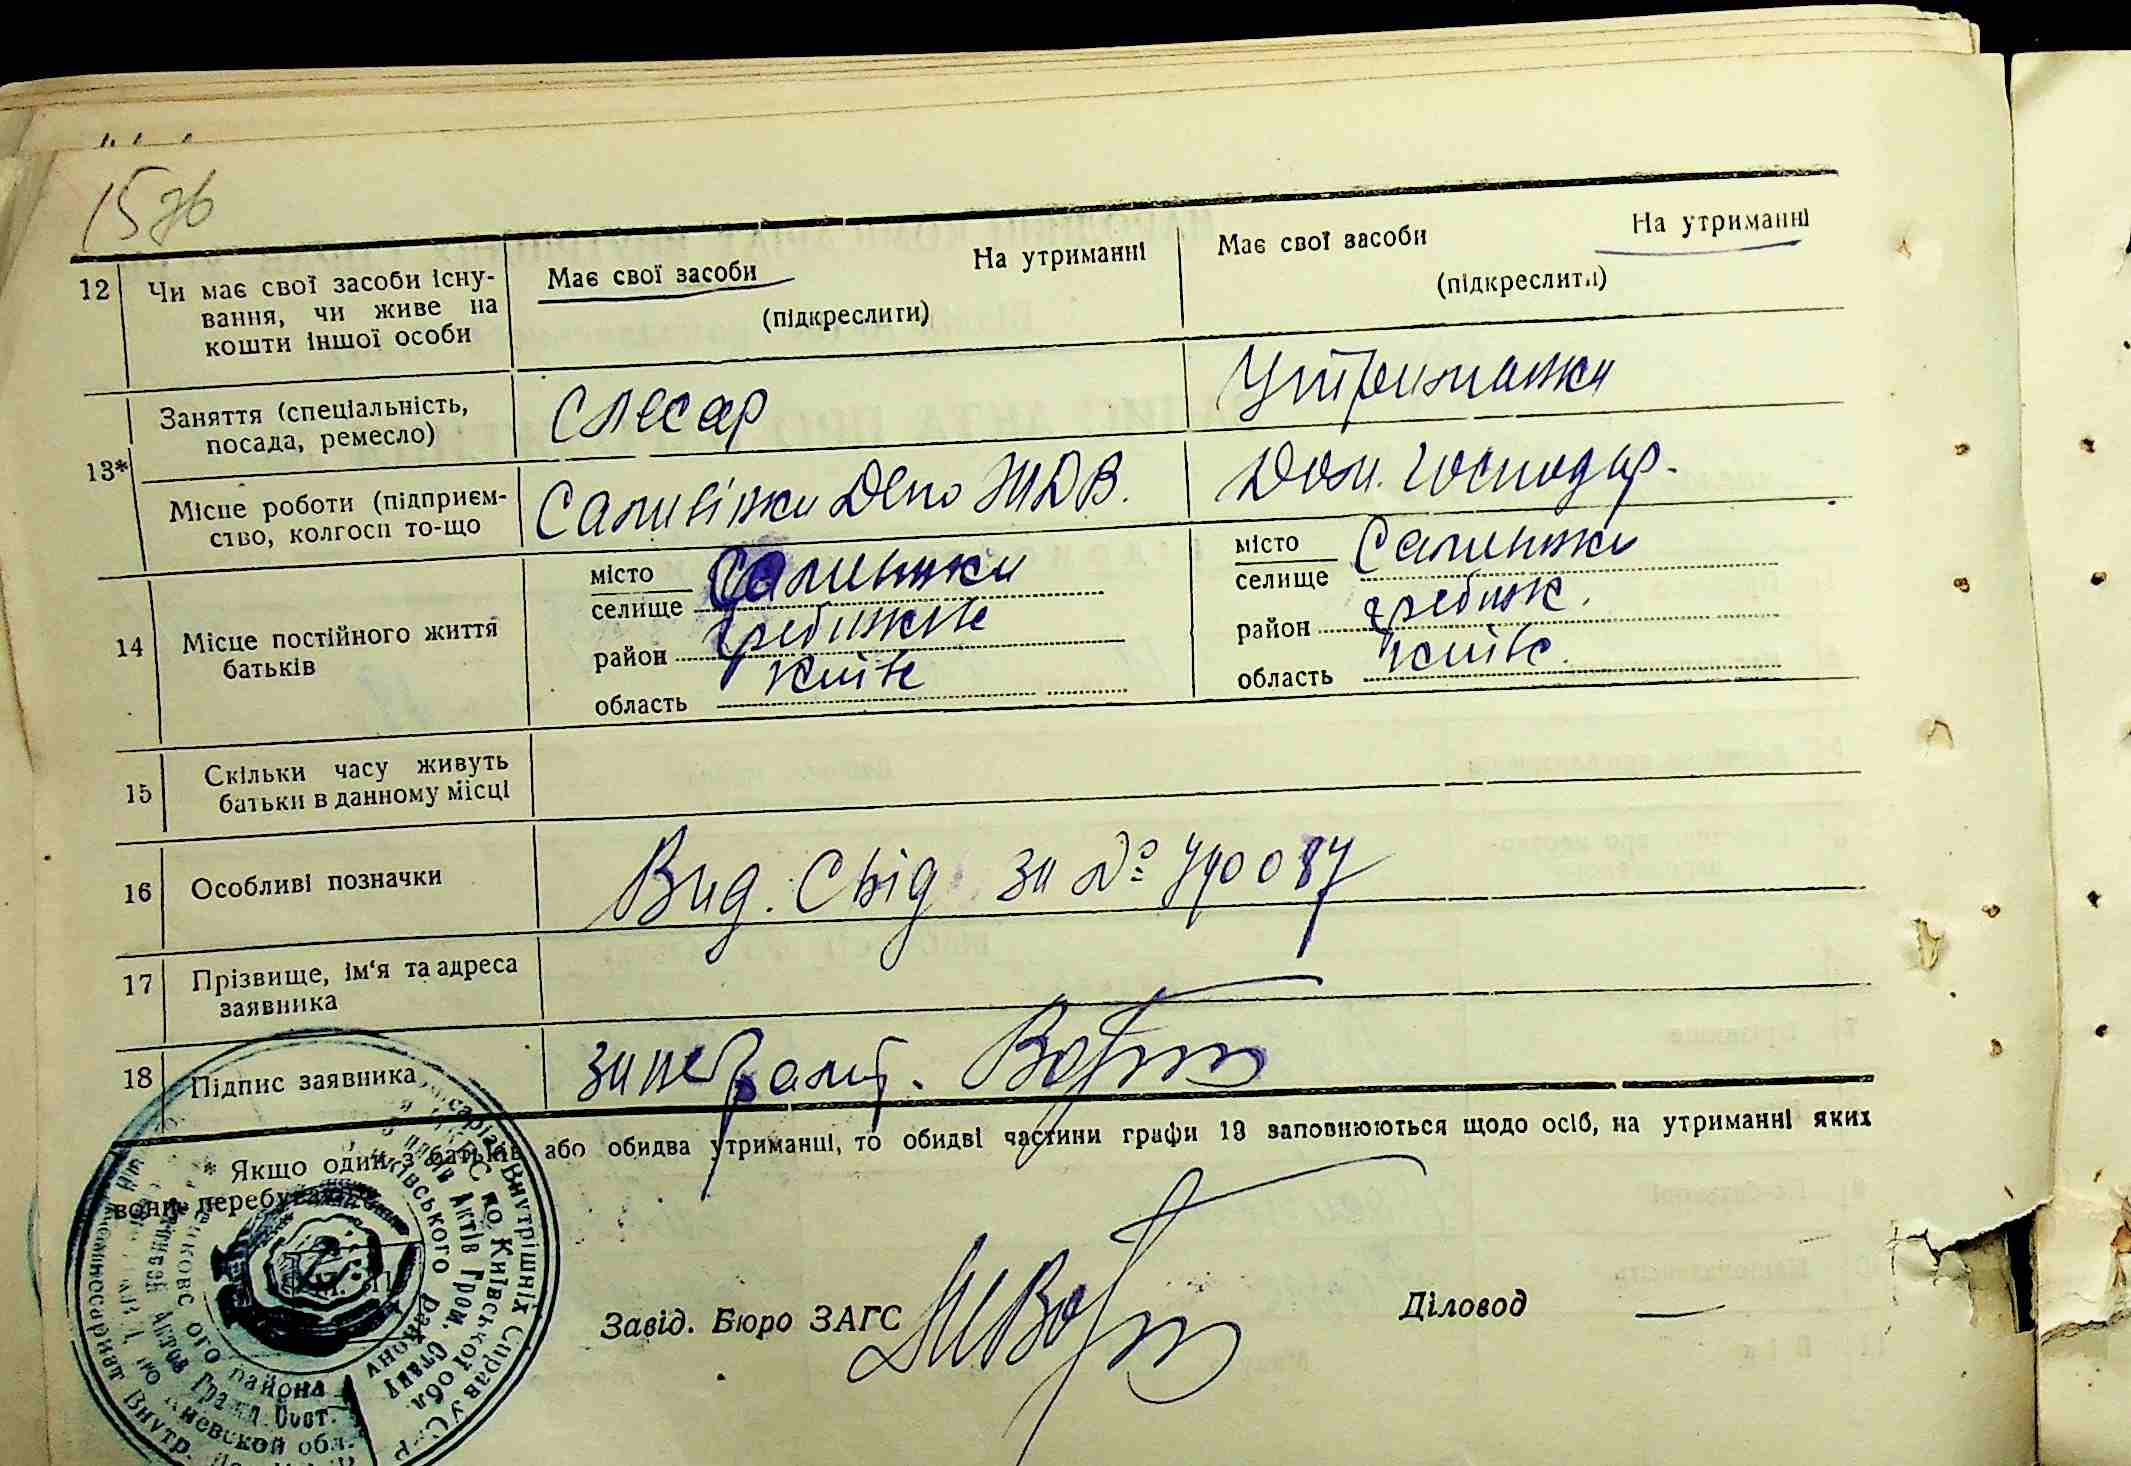 15зв
12 Чи має свої засоби існу- Має свої засоби На утриманні Має свої засоби На утриманні
вання, чи живе на (підкреслити) (підкреслити)
кошти іншої особи
13* Заняття (спеціальність, Слесар Утриманки
посада, ремесло)
Місце роботи (підприєм- Саливінки Депо ЖДВ. Дом. господар.
ство, колгосп то-що
14 Місце постійного життя місто Салинки місто Салинки
батьків селище селище
район гребінк район гребінк.
область київ область київ.
15 Скільки часу живуть
батьки в данному місці
16 Особливі позначки Вид. Свід за №
17 Прізвище, ім'я та адреса
заявника
18 Підпис заявника за неграмт.
* Якщо один з батьків або обидва утриманці, то обидві частини графи 13 заповнюються щодо осіб, на утриманні яких
вони перебувають
Завід. Бюро ЗАГС Діловод —
Внутрішніх Справ УСРР
по Київській обл.
Актів Гром. Стану
району
района
Актов Гражд. Сост.
Киевской обл.